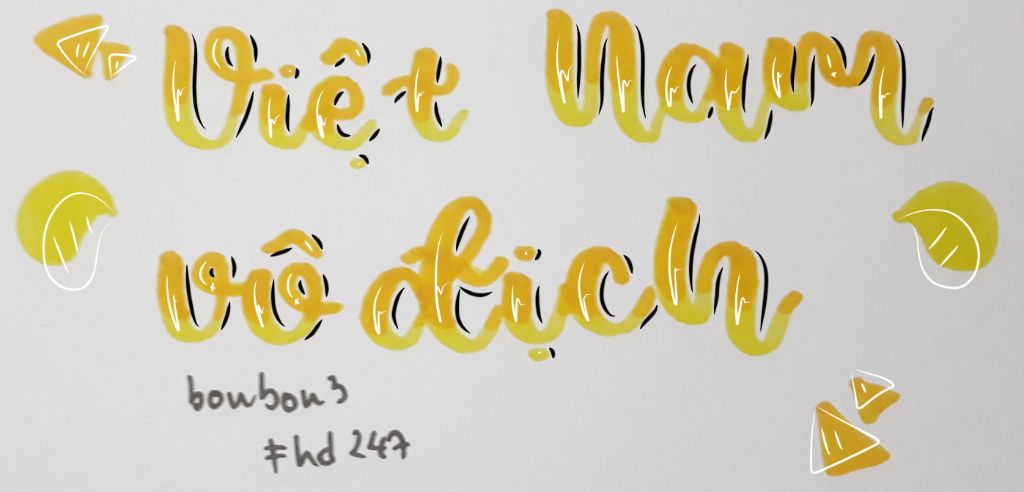 Việt Nam
vô địch
bonbon3
#hd 247